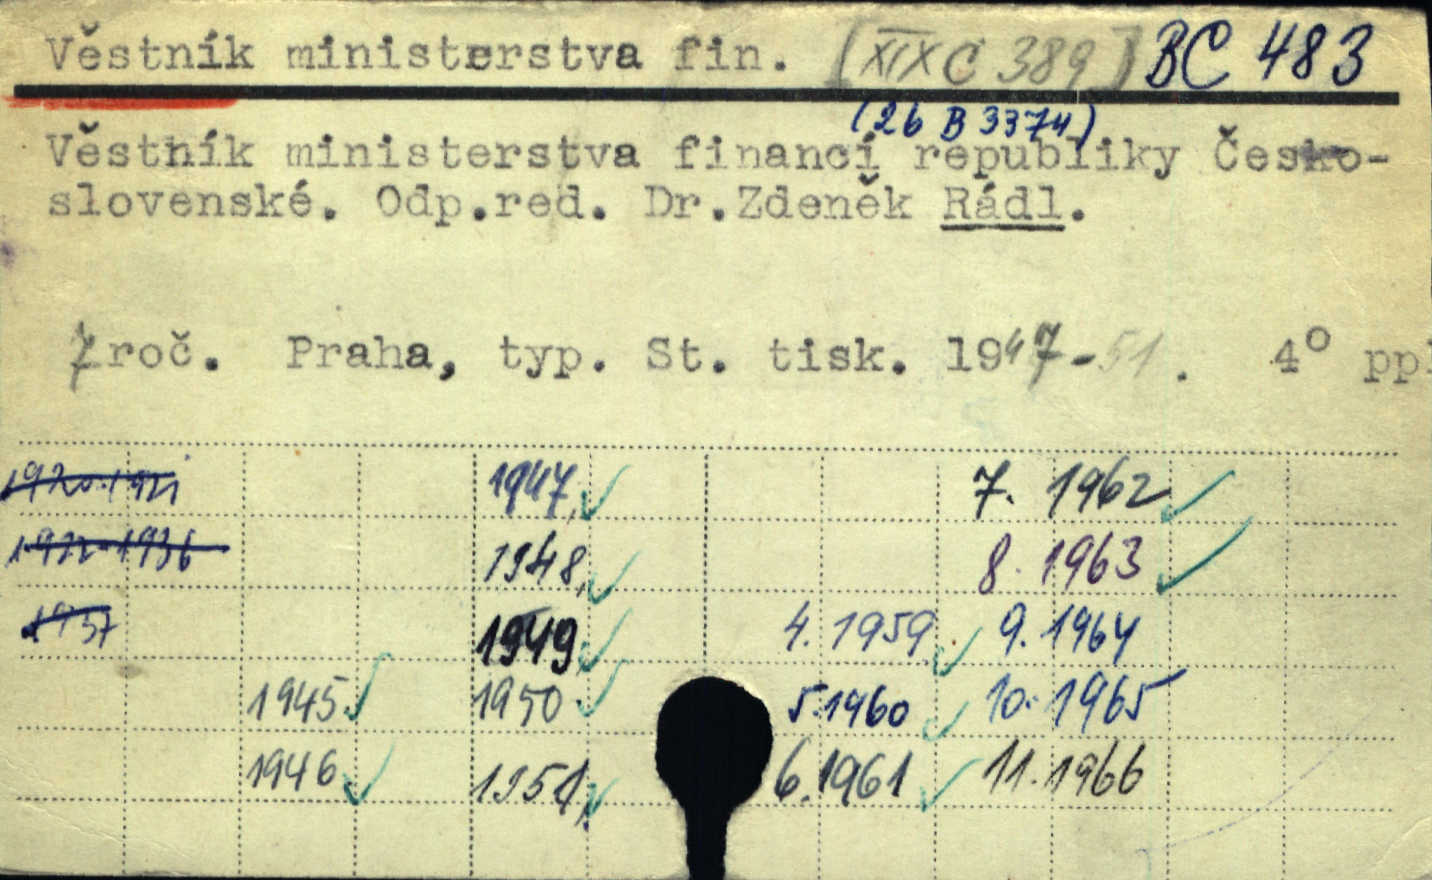 Věstník ministerstva fin. [XIX C 389] BC 483
(26 B 3374)
Věstník ministerstva financí republiky Česko-
slovenské. Odp.red. Dr.Zdeněk Rádl.
7 roč. Praha, typ. St. tisk. 1947-51. 4° ppl
1920-1921 1947, 7. 1962
1922-1936 1948, 8. 1963
1937 1949, 4. 1959 9. 1964
1945 1950 5. 1960 10. 1965
1946 1951, 6. 1961 11. 1966